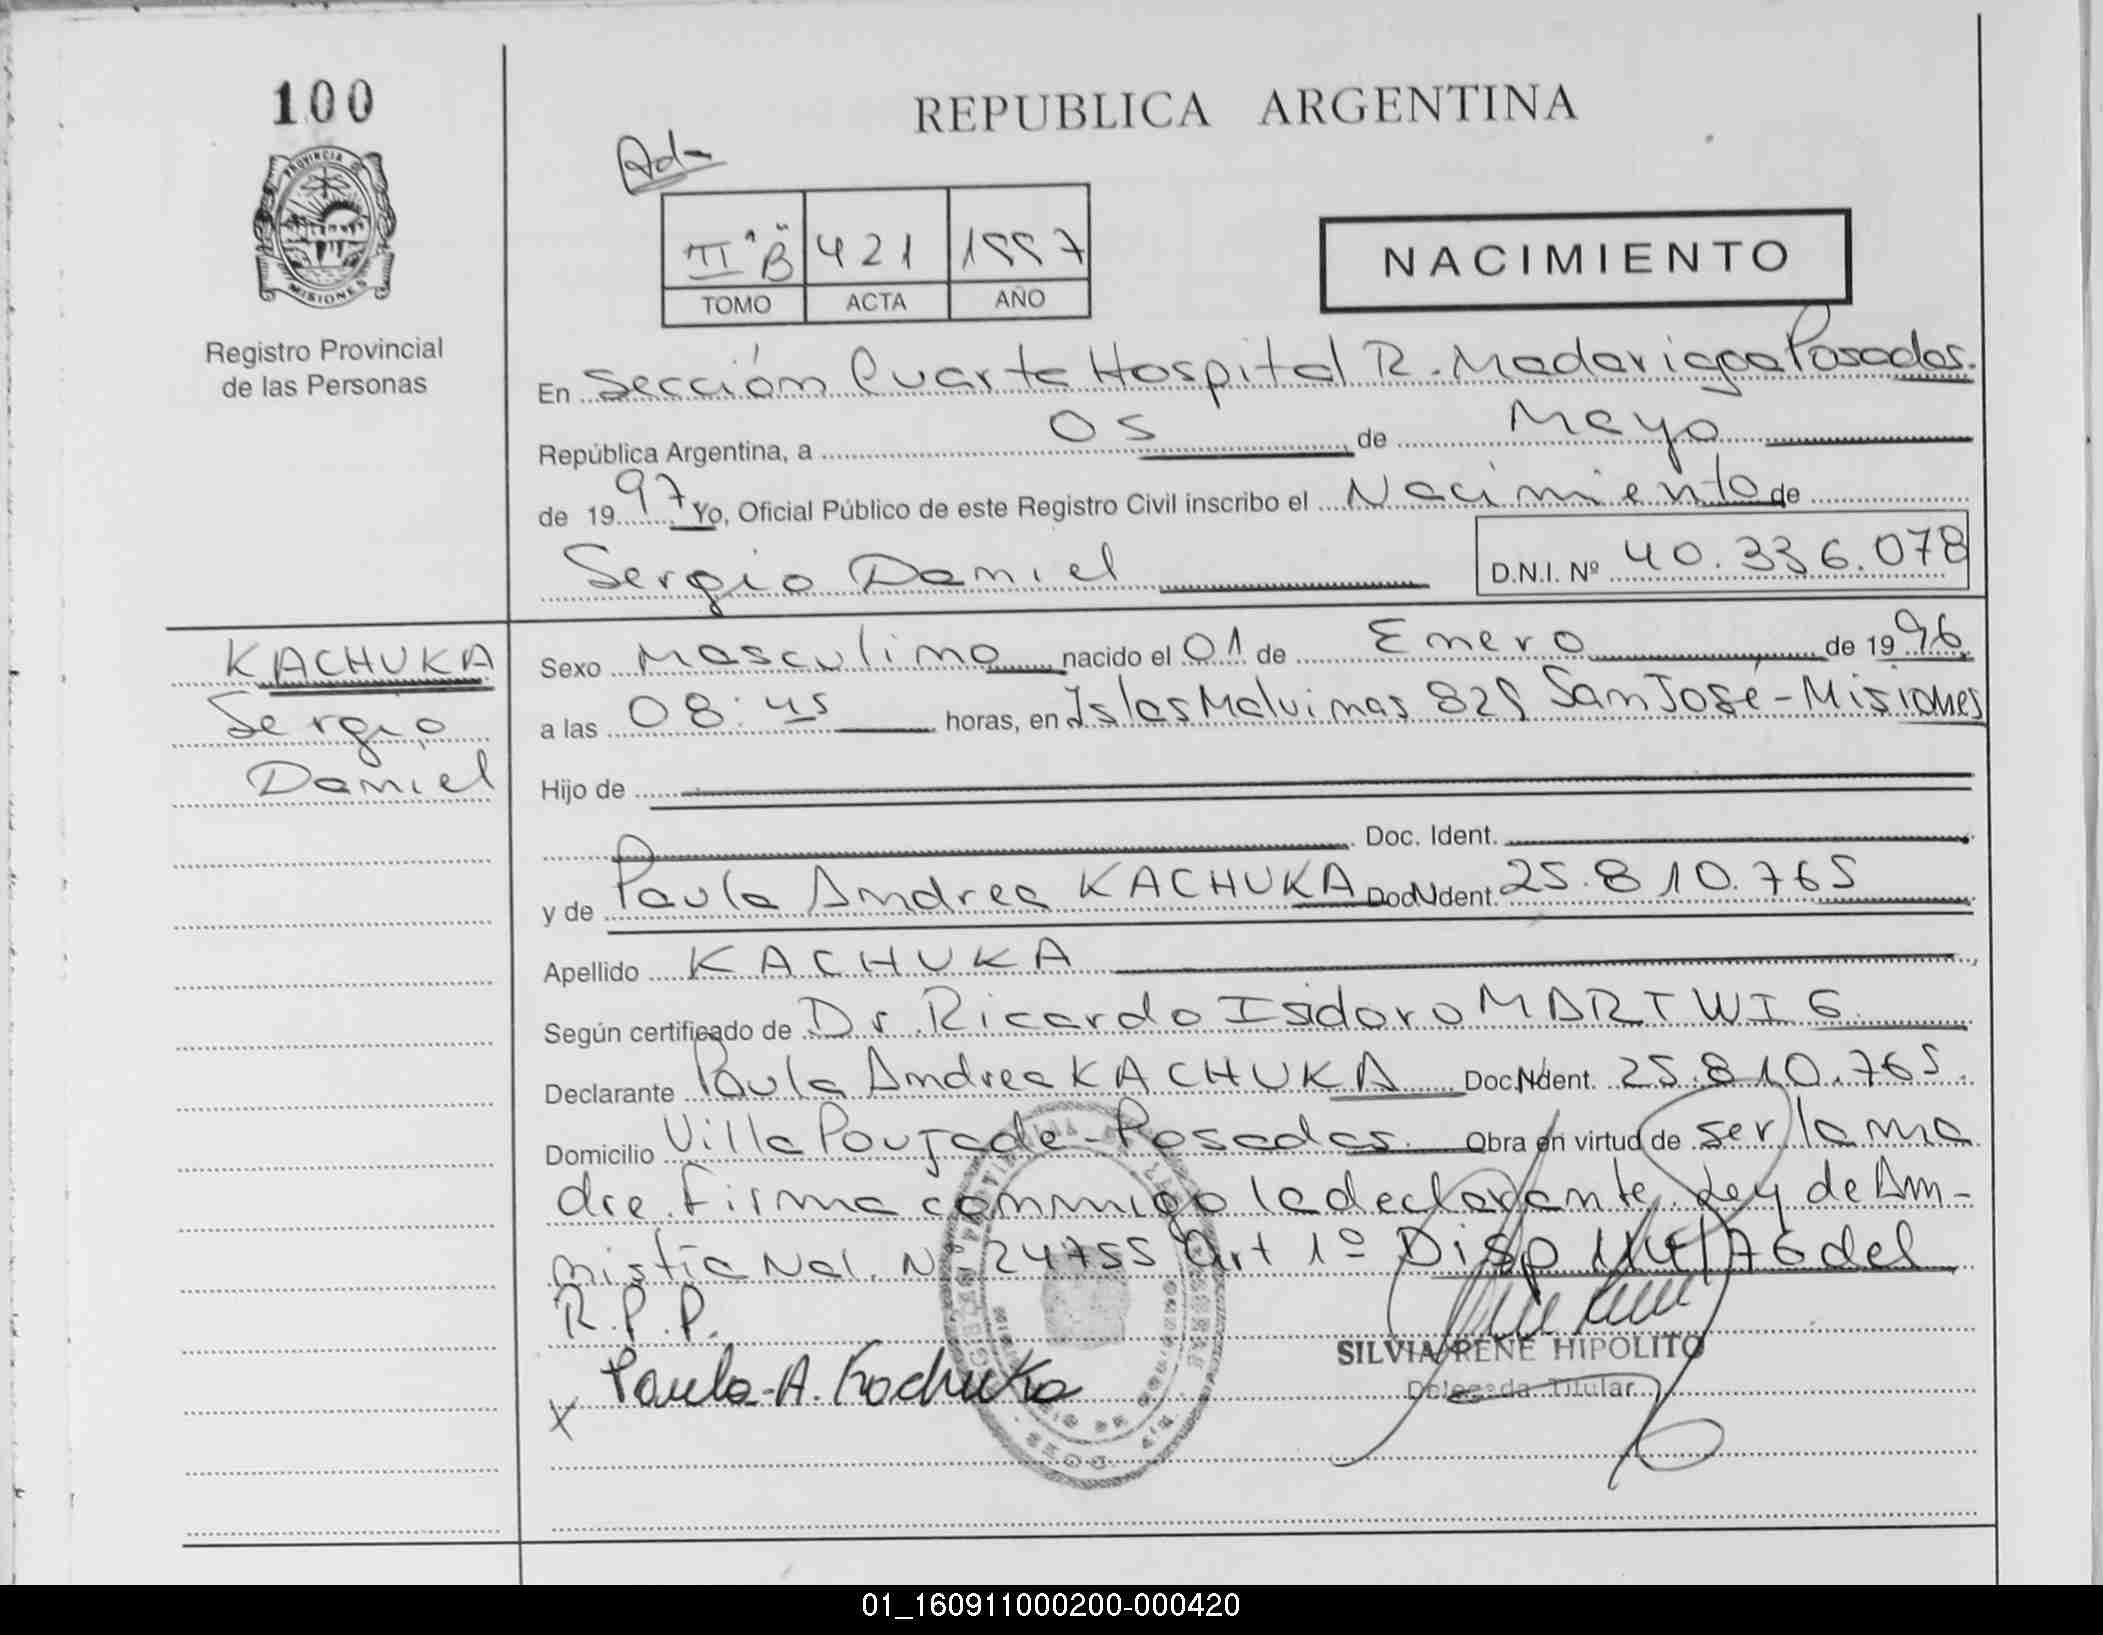 100
PROVINCIA DE
MISIONES
Registro Provincial
de las Personas
REPUBLICA ARGENTINA
III "B" 421 1997
TOMO ACTA AÑO
NACIMIENTO
En Sección Cuarta Hospital R. Madariaga Posadas.
República Argentina, a 05 de Mayo
de 1997 Yo, Oficial Público de este Registro Civil inscribo el Nacimiento de
Sergio Daniel D.N.I. Nº 40.336.078
KACHUKA
Sergio
Daniel
Sexo Masculino nacido el 01 de Enero de 1996
a las 08:45 horas, en Islas Malvinas 829 San José - Misiones
Hijo de
Doc. Ident.
y de Paula Andrea KACHUKA Doc. Ident. 25.810.765
Apellido KACHUKA
Según certificado de Dr. Ricardo Isidoro MARTWIG
Declarante Paula Andrea KACHUKA Doc. Ident. 25.810.765.
Domicilio Villa Poujade - Posadas. Obra en virtud de ser la ma
dre. Firma conmigo la declarante. Ley de Am-
nistía Nal. Nº 24755 Art 1º Disp 114/76 del
R.P.P.
X Paula A. Kachuka
SILVIA RENE HIPOLITO
Delegada Titular
01_160911000200-000420